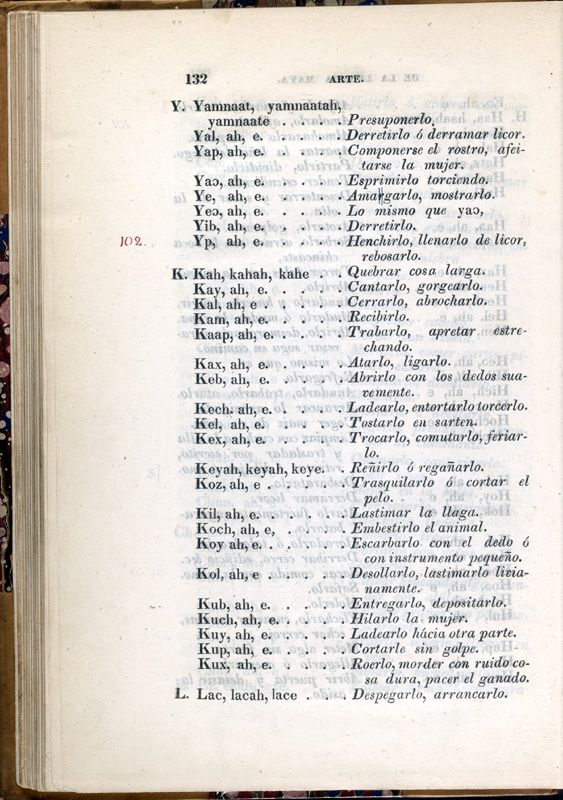 132 ARTE.
Y. Yamnaat, yamnaatah,
yamnaate . . . . Presuponerlo,
Yal, ah, e. . . . . Derretirlo ó derramar licor.
Yap, ah, e. . . . . Componerse el rostro, afei-
tarse la mujer.
Yaɔ, ah, e. . . . . Esprimirlo torciendo.
Ye, ah, e. . . . . Amargarlo, mostrarlo.
Yeɔ, ah, e. . . . . Lo mismo que yaɔ,
Yib, ah, e. . . . . Derretirlo.
102. Yp, ah, e. . . . . Henchirlo, llenarlo de licor,
rebosarlo.
K. Kah, kahah, kahe . Quebrar cosa larga.
Kay, ah, e. . . . . Cantarlo, gorgearlo.
Kal, ah, e . . . . . Cerrarlo, abrocharlo.
Kam, ah, e. . . . . Recibirlo.
Kaap, ah, e. . . . . Trabarlo, apretar estre-
chando.
Kax, ah, e. . . . . Atarlo, ligarlo.
Keb, ah, e. . . . . Abrirlo con los dedos sua-
vemente.
Kech. ah, e. . . . . Ladearlo, entortárlo torcerlo.
Kel, ah, e. . . . . Tostarlo en sarten.
Kex, ah, e. . . . . Trocarlo, comutarlo, feriar-
lo.
Keyah, keyah, keye. . Reñirlo ó regañarlo.
Koz, ah, e . . . . . Trasquilarlo ó cortar el
pelo.
Kil, ah, e. . . . . Lastimar la llaga.
Koch, ah, e, . . . . Embestirlo el animal.
Koy ah, e. . . . . Escarbarlo con el dedo ó
con instrumento pequeño.
Kol, ah, e . . . . . Desollarlo, lastimarlo livia-
namente.
Kub, ah, e. . . . . Entregarlo, depositarlo.
Kuch, ah, e. . . . . Hilarlo la mujer.
Kuy, ah, e. . . . . Ladearlo hácia otra parte.
Kup, ah, e. . . . . Cortarle sin golpe.
Kux, ah, e. . . . . Roerlo, morder con ruido co-
sa dura, pacer el ganado.
L. Lac, lacah, lace . . . Despegarlo, arrancarlo.